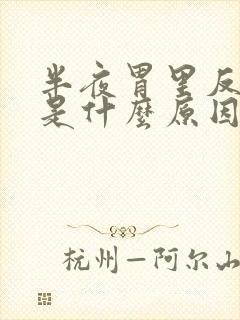 半夜胃里反
是什麼原因
杭州—阿尔山